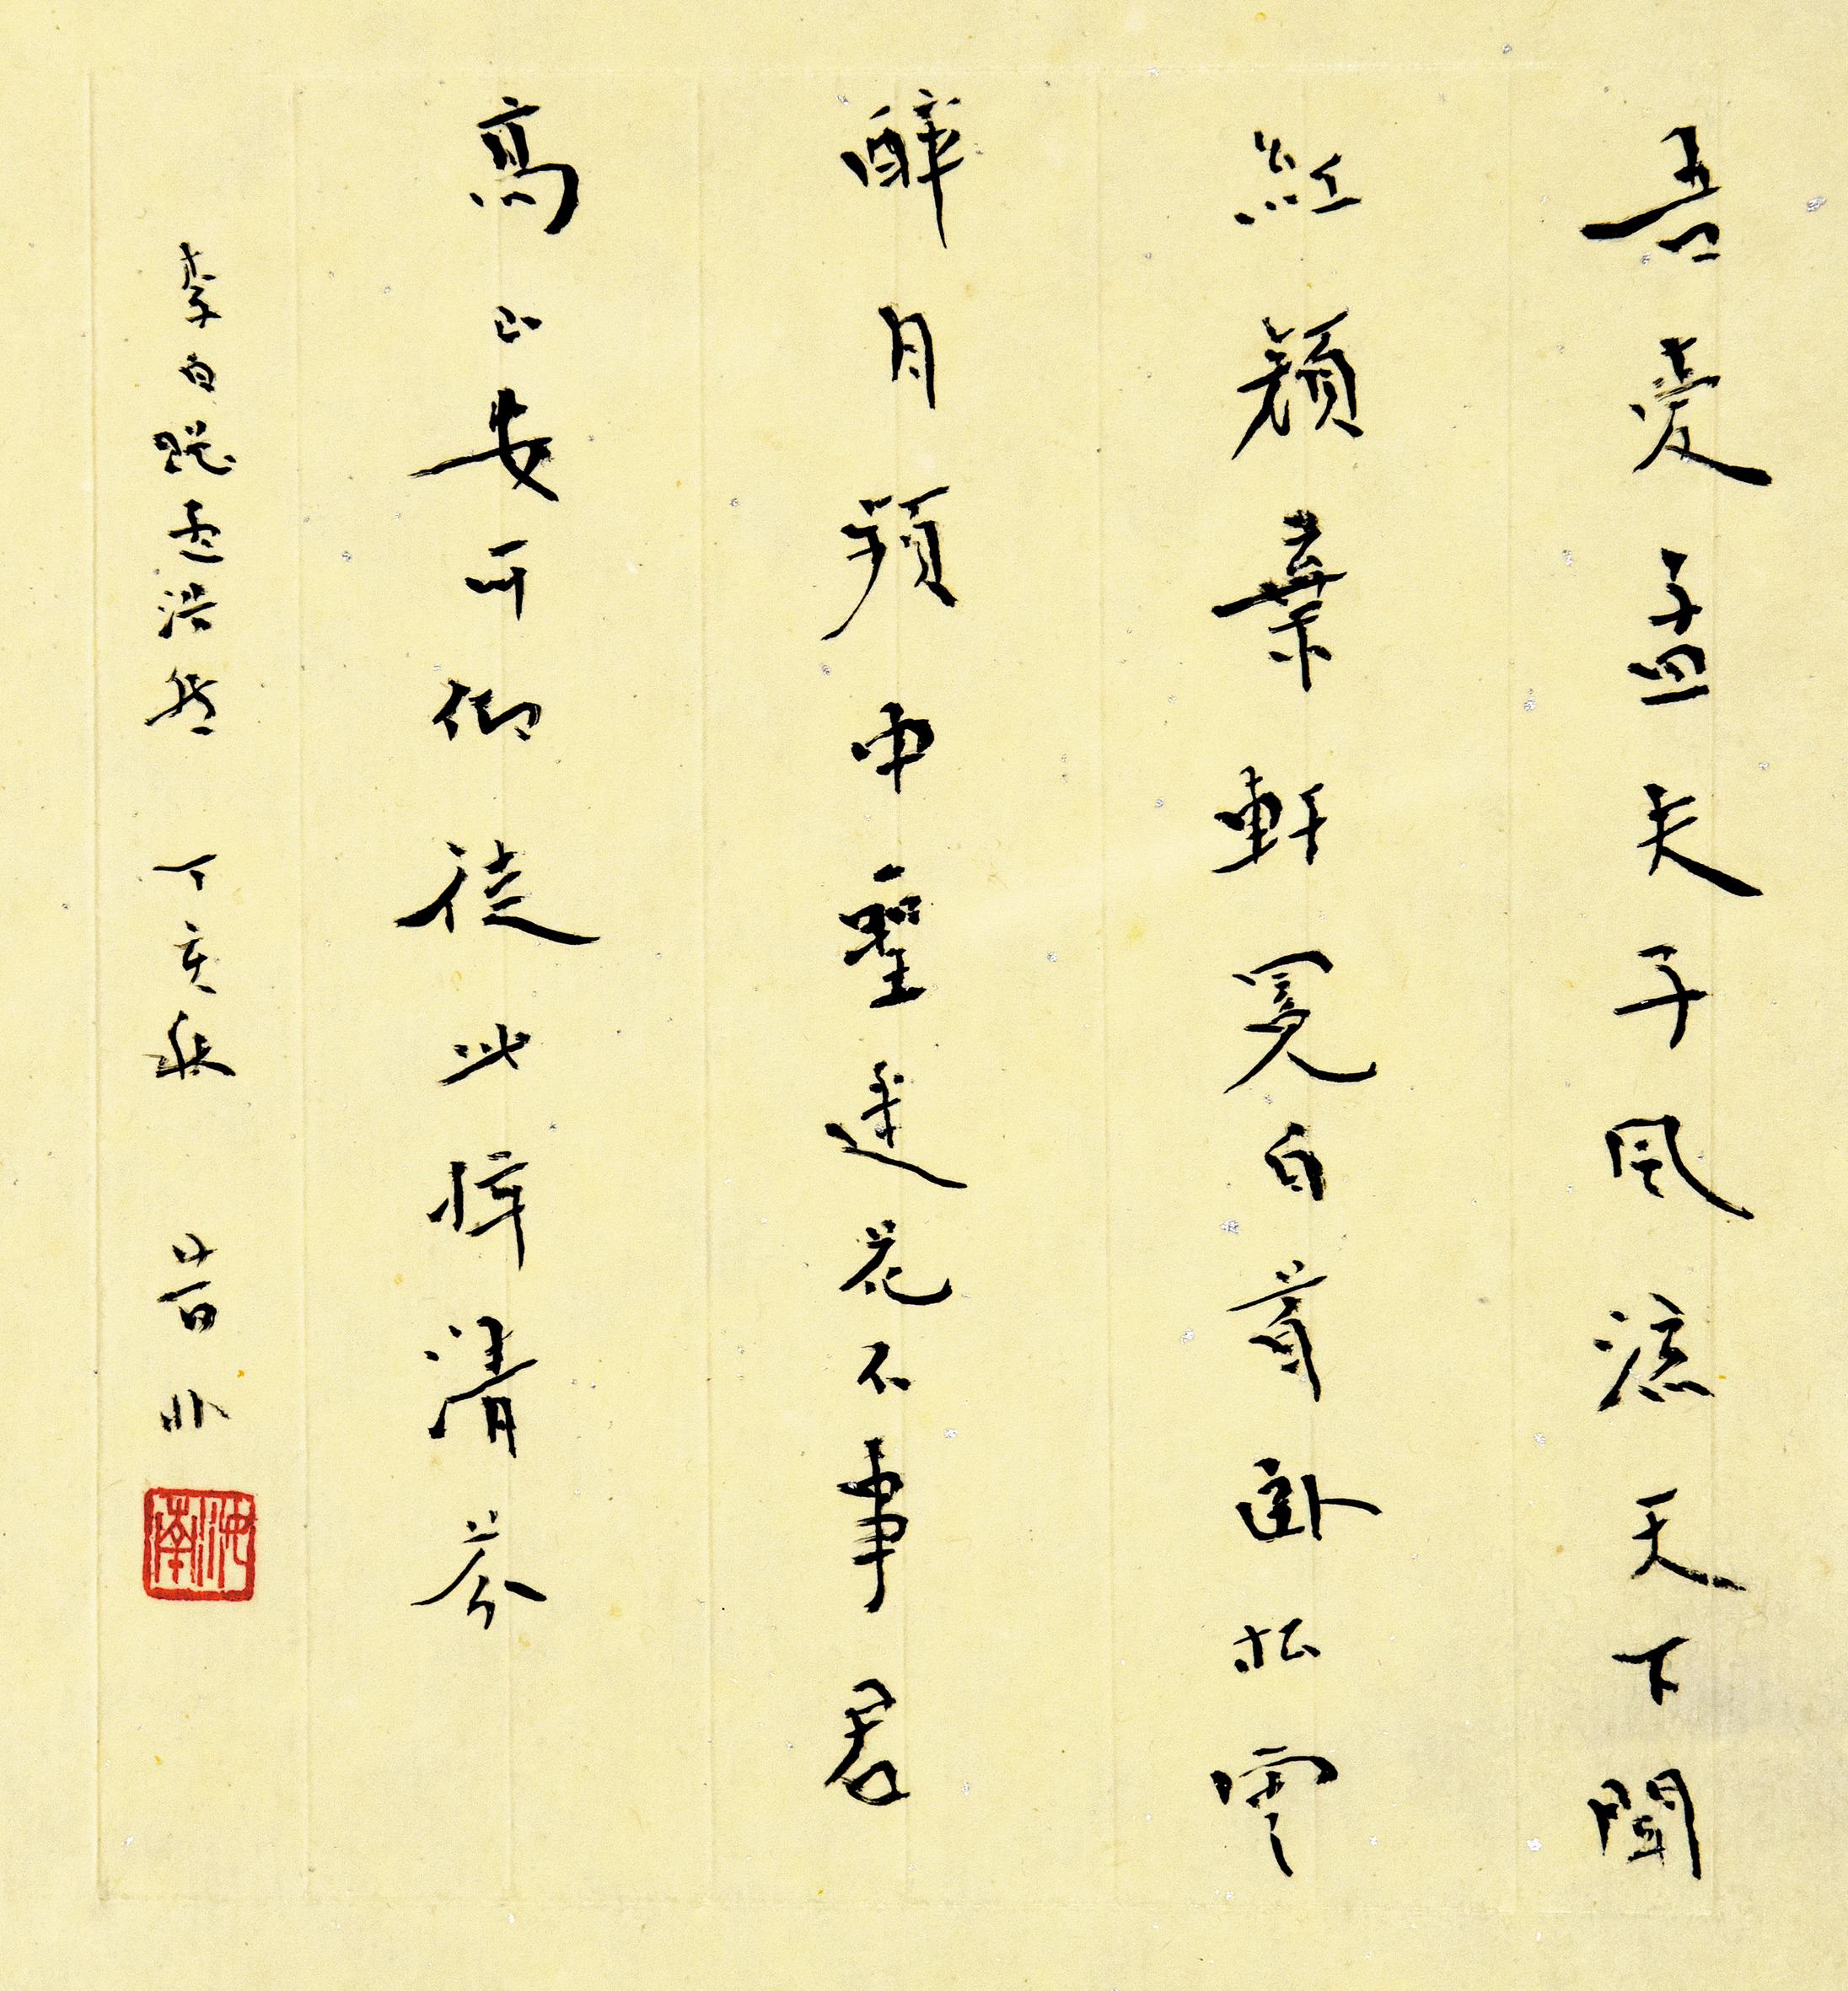 吾愛孟夫子風流天下聞
紅顏棄軒冕白首臥松雲
醉月頻中聖迷花不事君
高山安可仰徒此揖清芬
李白贈孟浩然 丁亥秋 昔